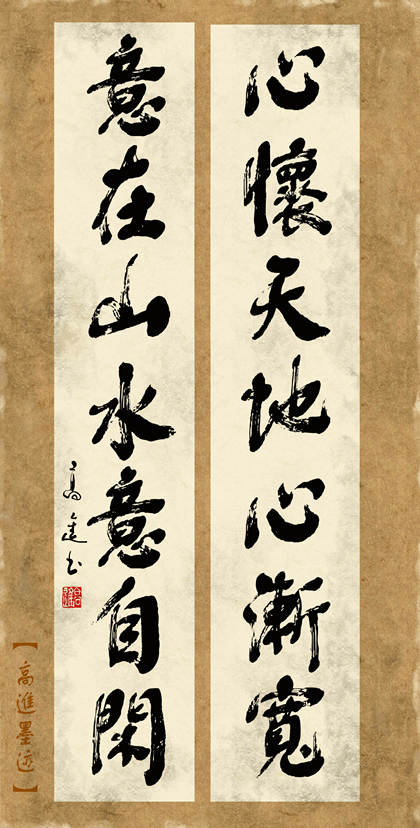 心懷天地心漸寬
意在山水意自閑
高進书
【高進墨迹】